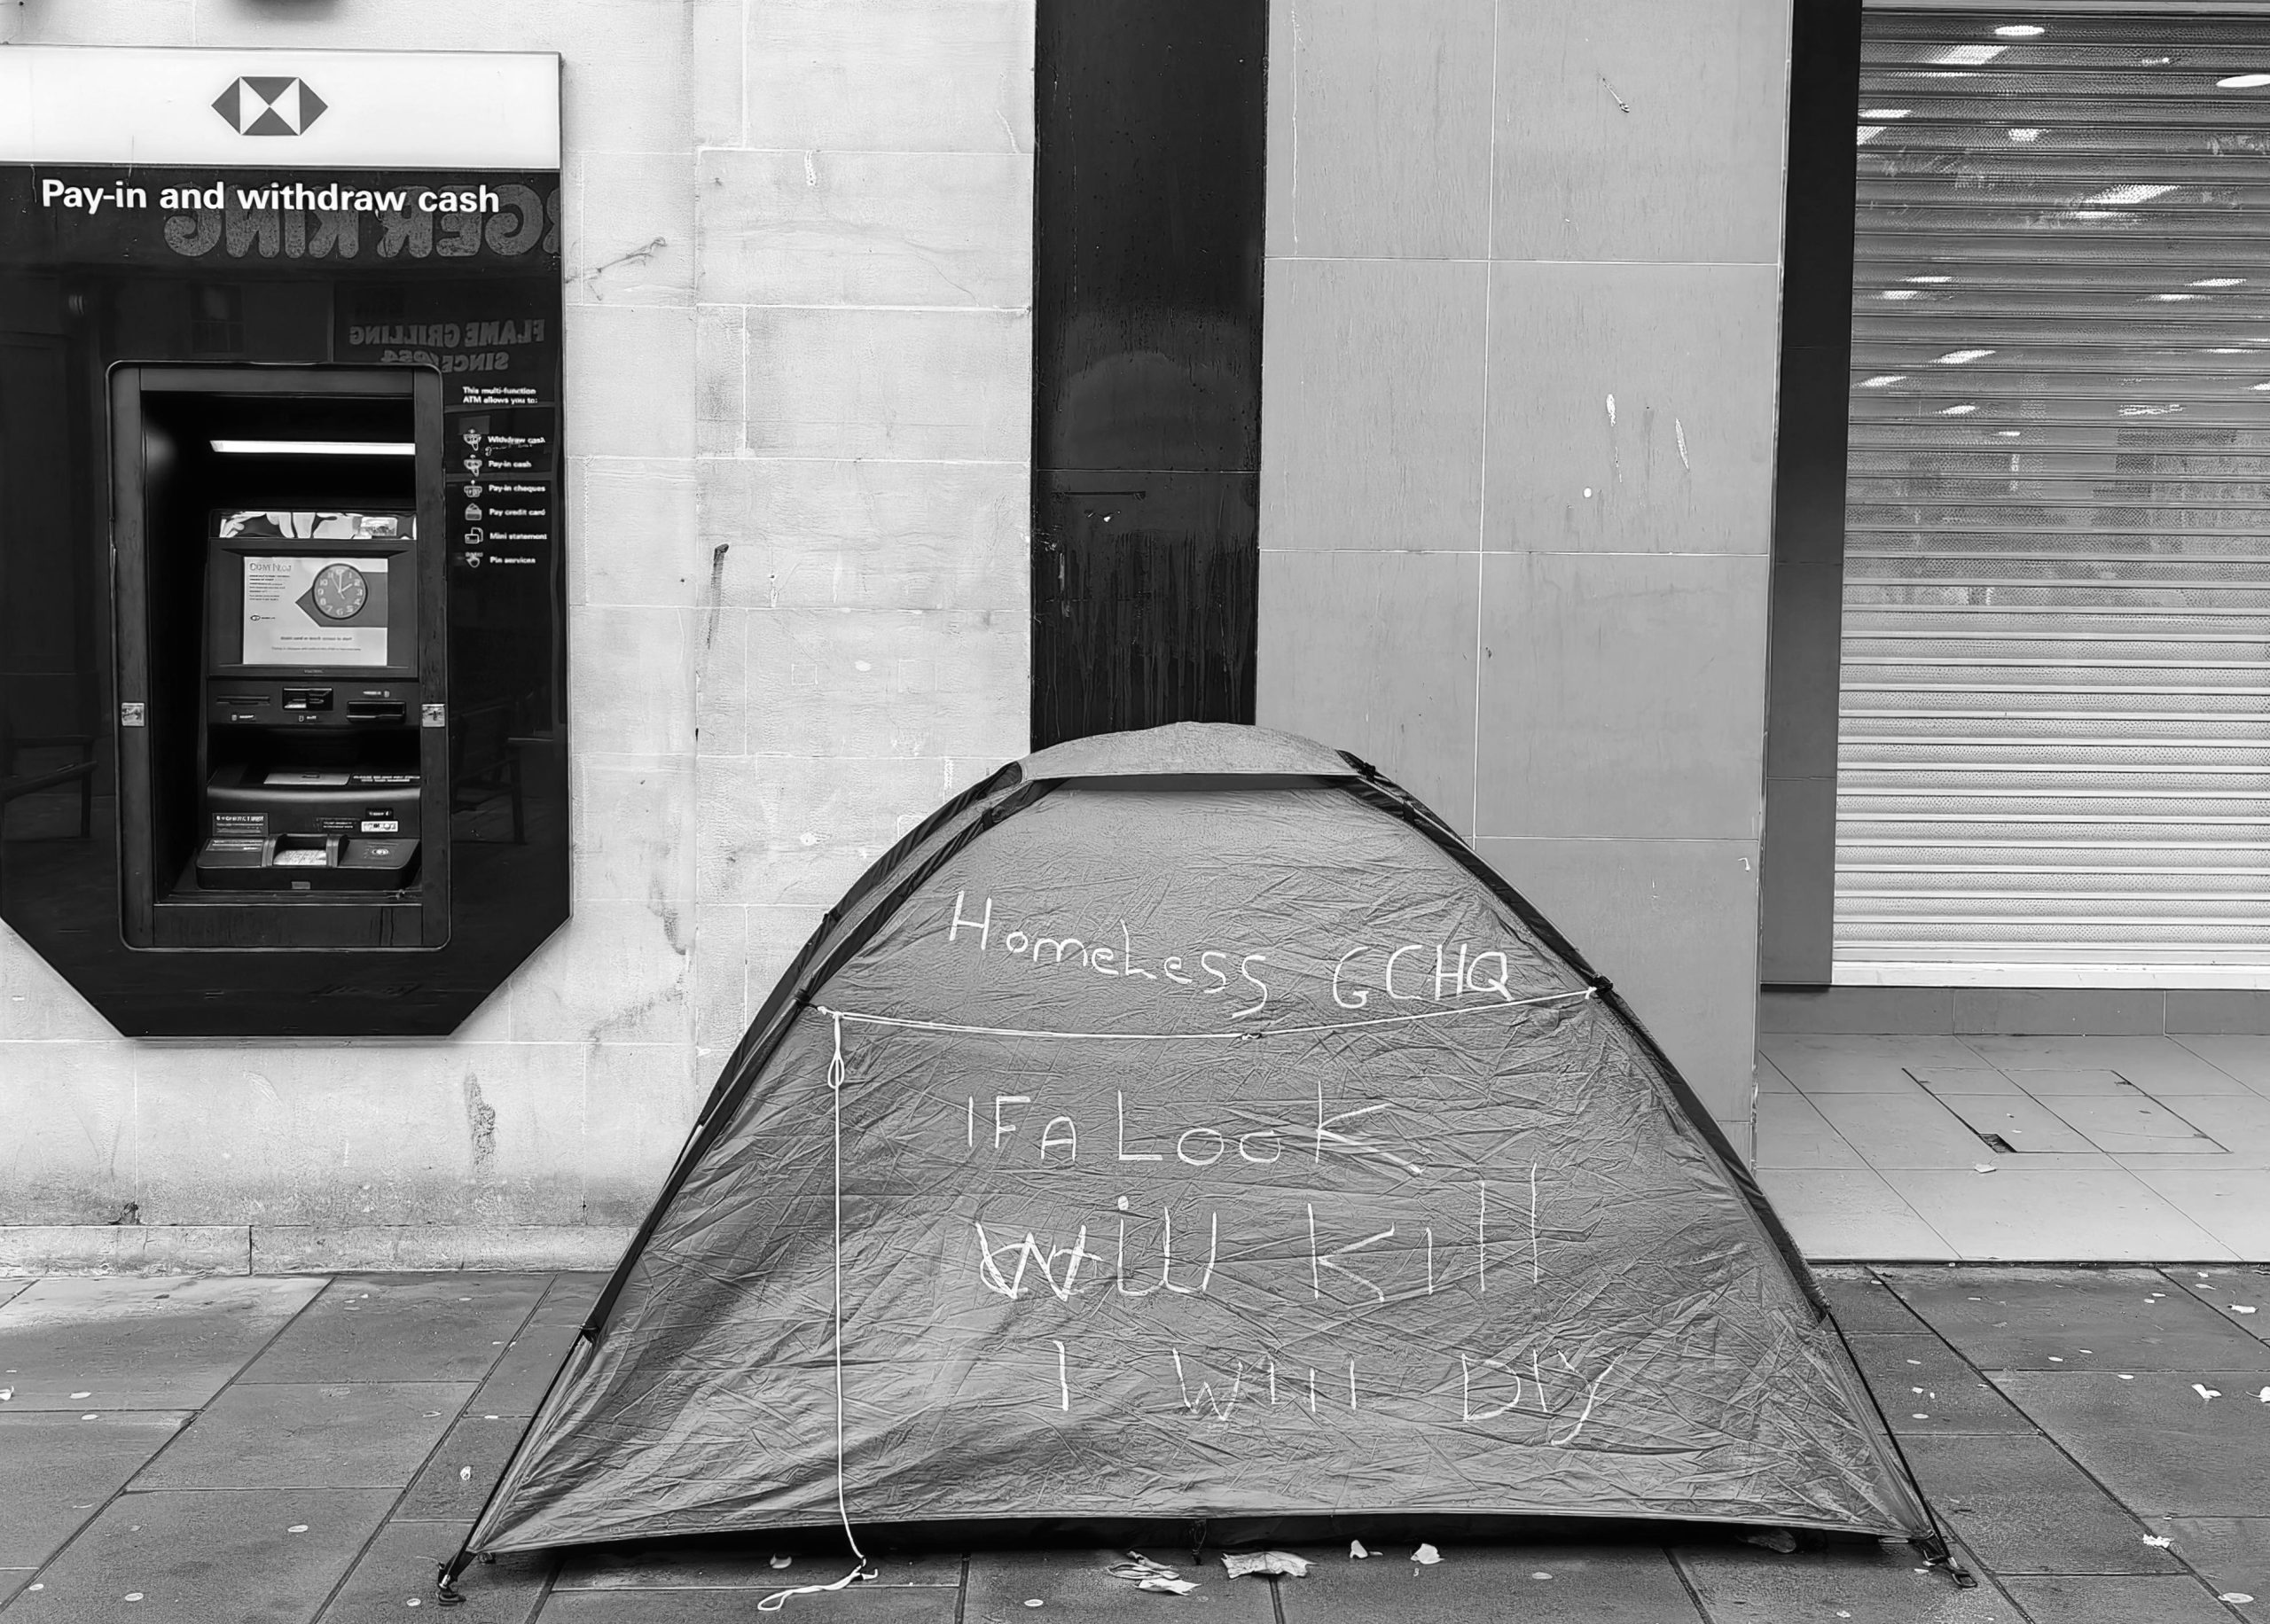 Pay-in and withdraw cash
BURGER KING
FLAME GRILLING
SINCE 1954
This multi-function
ATM allows you to:
Withdraw cash
Pay-in cash
Pay-in cheques
Pay credit card
Mini statement
Pin services
HomeLess GCHQ
IF A LooK
Will Kill
I Will DIY